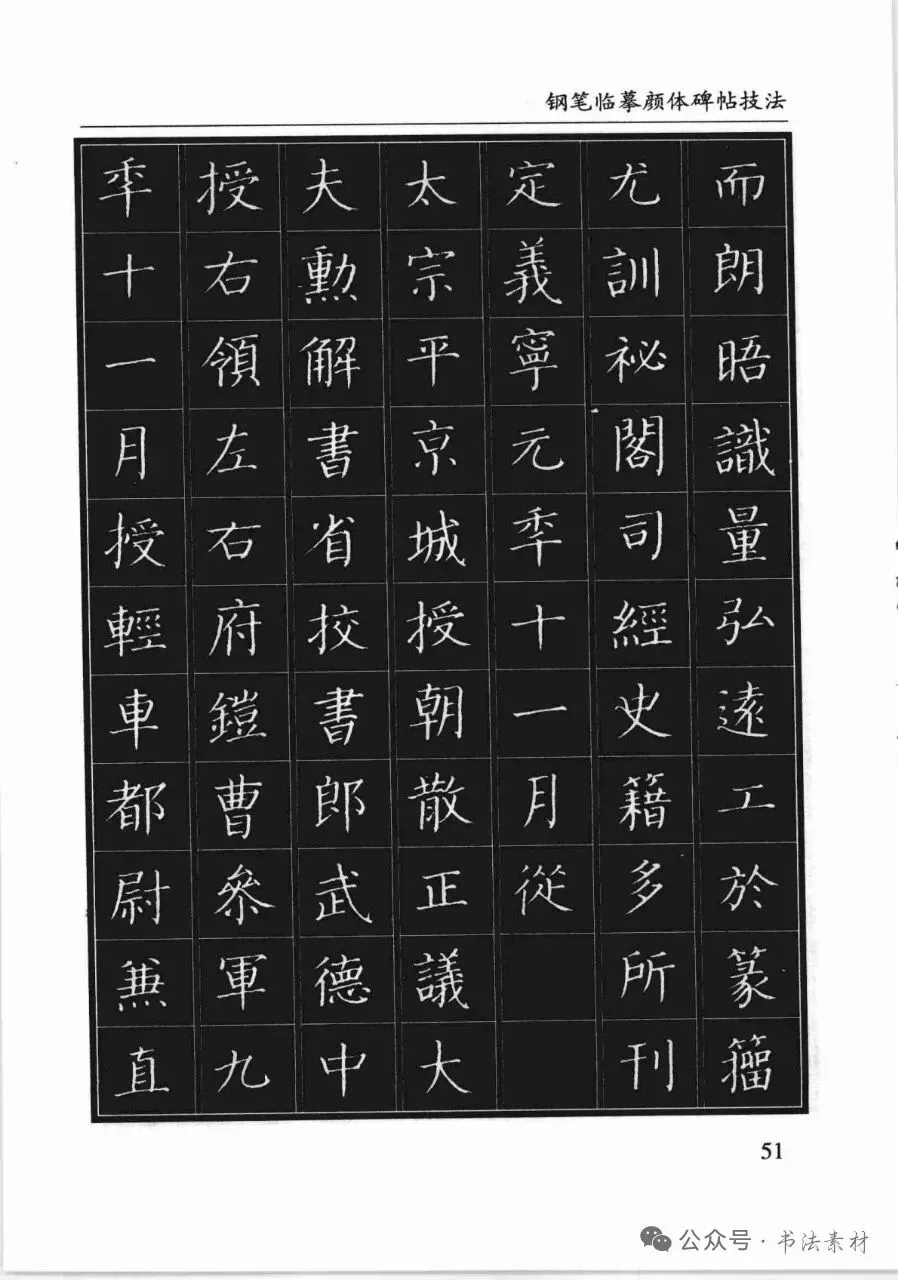 钢笔临摹颜体碑帖技法
而朗晤識量弘遠工於篆籀
尤訓祕閣司經史籍多所刊
定義寧元秊十一月從
太宗平京城授朝散正議大
夫勳解書省挍書郎武德中
授右領左右府鎧曹叅軍九
秊十一月授輕車都尉兼直
51
公众号·书法素材